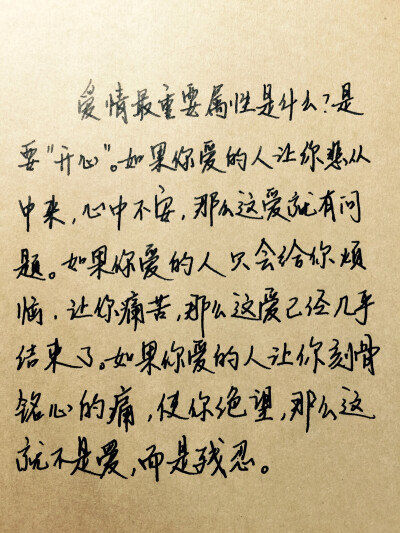 爱情最重要属性是什么?是
要“开心”。如果你爱的人让你悲从
中来,心中不安,那么这爱就有问
题。如果你爱的人只会给你烦
恼,让你痛苦,那么这爱已经几乎
结束了。如果你爱的人让你刻骨
铭心的痛,使你绝望,那么这
就不是爱,而是残忍。